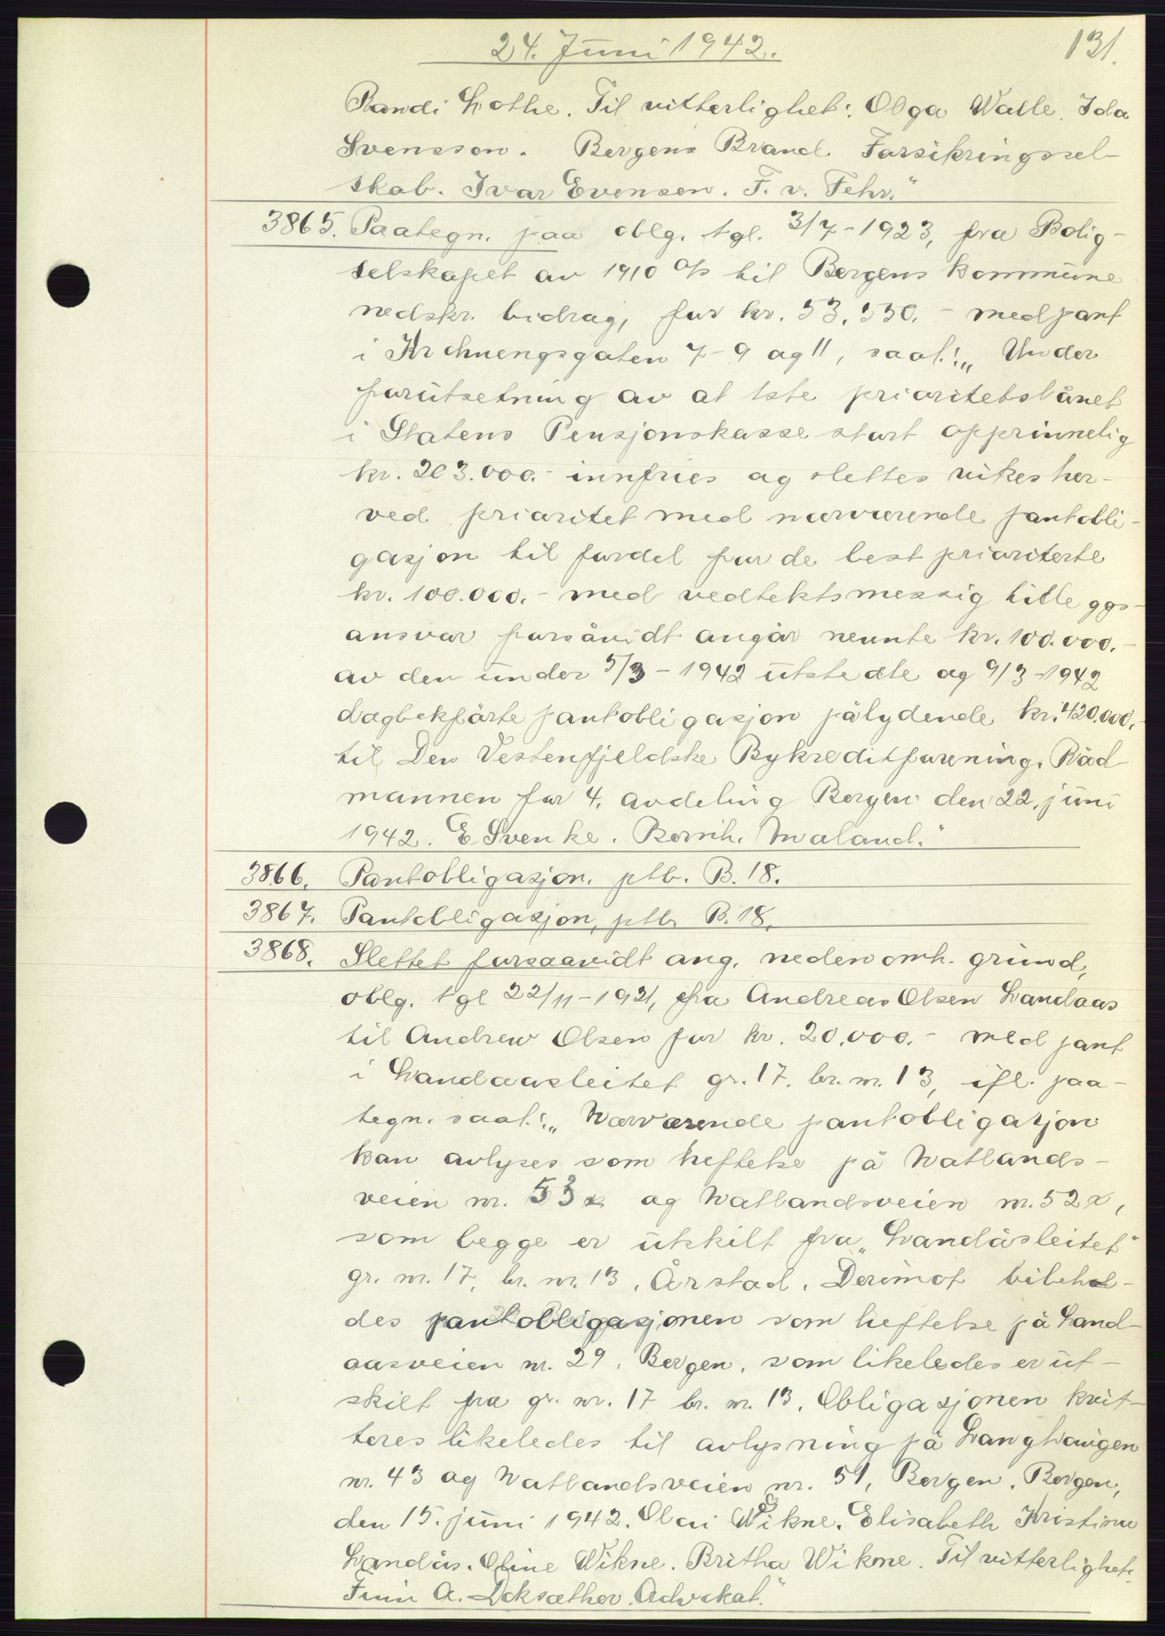 24. Juni 1942.
131.
Randi Lothe. Til vitterlighet: Olga Walle. Ida
Svensson. Bergens Brand Forsikringssel-
skab. Ivar Evensen. F. v. Fehr."
3865. Paategn. paa oblg. tgl. 3/7-1923, fra Bolig-
selskapet av 1910 A/S til Bergens kommune
nedskr. bidrag, for kr. 53.550.- med pant
i Krohnengsgaten 7-9 og 11, saal.: „Under
forutsetning av at 1ste prioritetslånet
i Statens Pensjonskasse stort opprinnelig
kr. 203.000.- innfries og slettes vikes her-
ved prioritet med nærværende pantobli-
gasjon til fordel for de best prioriterte
kr. 100.000.- med vedtektsmessig tilleggs-
ansvar forsåvidt angår nevnte kr. 100.000.-
av den under 5/3-1942 utstedte og 9/3-1942
dagbokførte pantobligasjon pålydende kr. 420.000.-
til Den Vestenfjeldske Bykreditforening. Råd-
mannen for 4. avdeling Bergen den 22. juni
1942. E Svenke. Bernh. Maland."
3866. Pantobligasjon. ptb. B. 18.
3867. Pantobligasjon, ptb. B. 18.
3868. Slettet forsaavidt ang. nedenomh. grund,
oblg. tgl 22/11-1921, fra Andreas Olsen Landaas
til Andrew Olsen for kr. 20.000.- med pant
i Landaasleitet gr. 17. br. nr. 13, ifl. paa-
tegn. saal.: „Nærværende pantobligasjon
kan avlyses som heftelse på Natlands-
veien nr. 53 og Natlandsveien nr. 52 a,
som begge er utskilt fra „Landåsleitet"
gr. nr. 17, br. nr. 13, Årstad. Derimot bibehol-
des pantobligasjonen som heftelse på Land-
aasveien nr. 29, Bergen, som likeledes er ut-
skilt fra gr. nr. 17 br. nr. 13. Obligasjonen kvit-
teres likeledes til avlysning på Langhaugen
nr. 43 og Natlandsveien nr. 51, Bergen. Bergen,
den 15. juni 1942. Olai Wikne. Elisabeth Kristine
Landås. Oline Wikne. Britha Wikne. Til vitterlighet:
Finn A. Doksæther. Advokat."